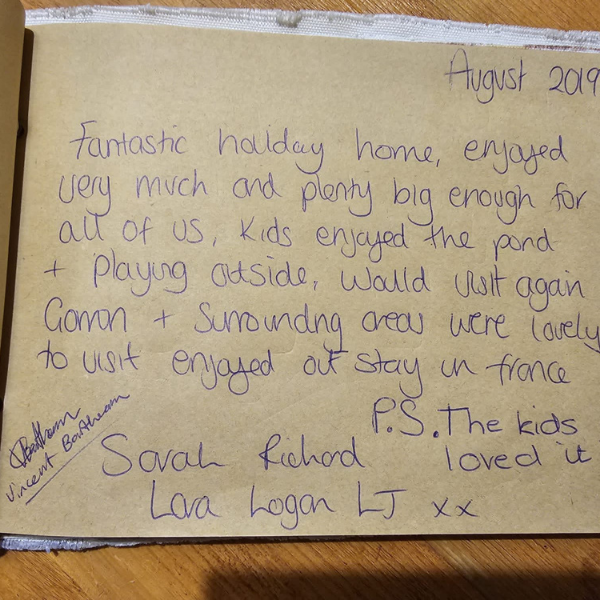 August 2019
Fantastic holiday home, enjoyed
very much and plenty big enough for
all of us, kids enjoyed the pond
+ playing outside, would visit again
Gorron + Surrounding areas were lovely
to visit enjoyed out stay in france
P.S. The kids
loved it
Sarah Richard
Lara Logan LJ xx
Vincent